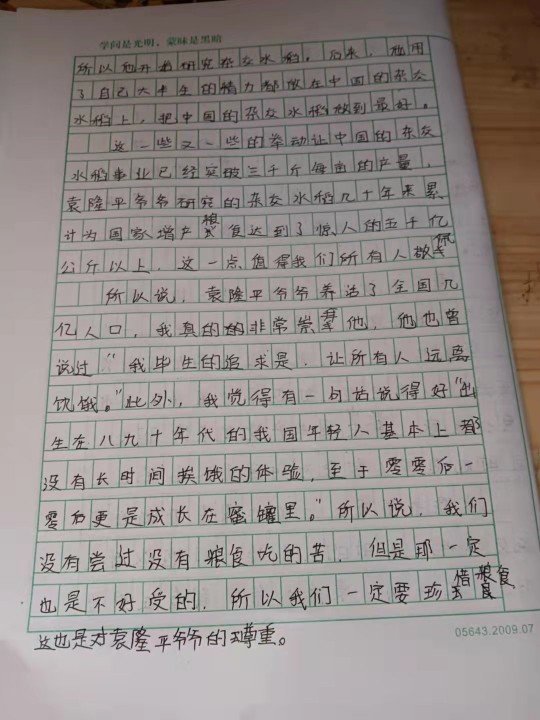 学问是光明，蒙昧是黑暗
所以他开始研究杂交水稻。后来，他用
了自己大半年的精力都放在中国的杂交
水稻上，把中国的杂交水稻做到最好。
这一些又一些的举动让中国的杂交
水稻事业已经突破三千斤每亩的产量，
袁隆平爷爷研究的杂交水稻几十年来累
计为国家增产粮食达到了惊人的五千亿
公斤以上，这一点值得我们所有人敬佩
所以说，袁隆平爷爷养活了全国几
亿人口，我真的的非常崇拜他，他也曾
说过“我毕生的追求是，让所有人远离
饥饿。”此外，我觉得有一句话说得好“出
生在八九十年代的我国年轻人基本上都
没有长时间挨饿的体验，至于零零后一
零后更是成长在蜜罐里。”所以说，我们
没有尝过没有粮食吃的苦，但是那一定
也是不好受的，所以我们一定要珍惜粮食
这也是对袁隆平爷爷的尊重。
05643.2009.07